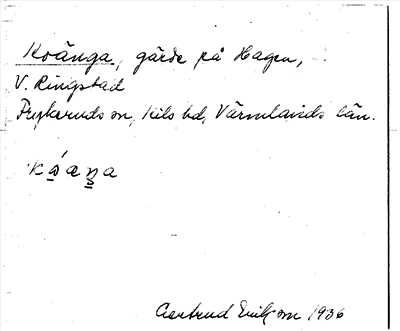 Koänga, gärde på Hagen,
V. Ringstad
Frykeruds sn, Kils hd, Värmlands län.
Gertrud Eriksson 1936